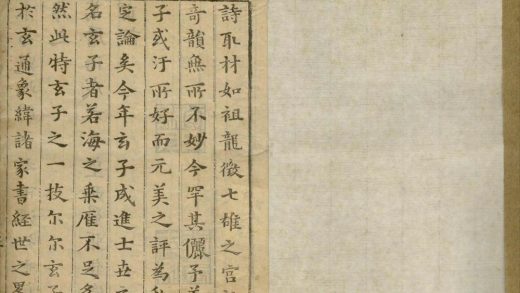 詩取材如祖龍徵七雄之宮
奇韻無所不妙今罕其儷予
子或汙所好而元美之評為
定論矣今年玄子成進士
名玄子者若海之乘雁不足
然此特玄子之一技尔尔玄子
於玄通象緯諸家書經世之